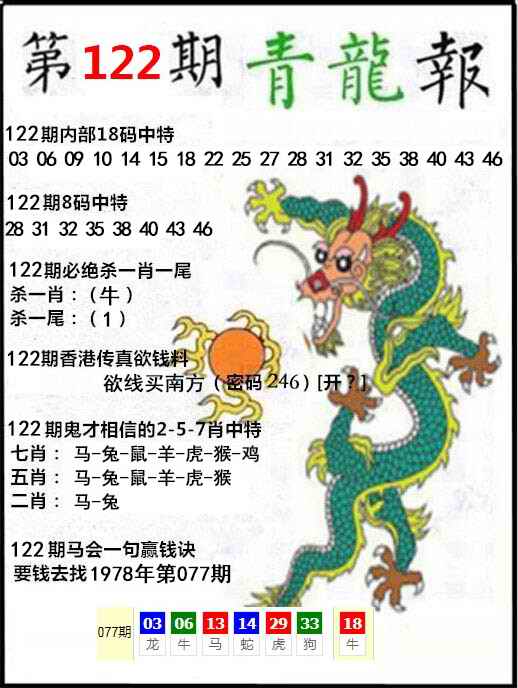 第122期青龍報
122期内部18码中特
03 06 09 10 14 15 18 22 25 27 28 31 32 35 38 40 43 46
122期8码中特
28 31 32 35 38 40 43 46
122期必绝杀一肖一尾
杀一肖：（牛）
杀一尾：（1）
122期香港传真欲钱料
欲线买南方（密码246）[开？]
122期鬼才相信的2-5-7肖中特
七肖： 马-兔-鼠-羊-虎-猴-鸡
五肖： 马-兔-鼠-羊-虎-猴
二肖： 马-兔
122期马会一句赢钱诀
要钱去找1978年第077期
077期 03 06 13 14 29 33 18
龙 牛 马 蛇 虎 狗 牛